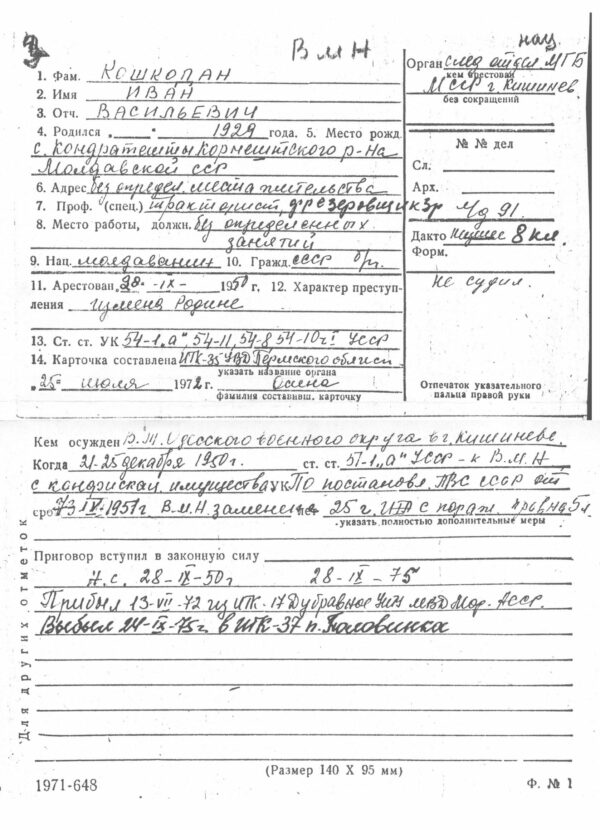 ВМН
нац.
1. Фам. КОШКОДАН
2. Имя ИВАН
3. Отч. ВАСИЛЬЕВИЧ
4. Родился „ “ 1929 года. 5. Место рожд.
с. Кондратешты Корнештского р-на
Молдавской сср
6. Адрес без определ. места жительства
7. Проф. (спец.) тракторист, фрезеровщик 3р
8. Место работы, должн. без определенных
занятий
9. Нац. молдаванин 10. Гражд. ссср б/п.
11. Арестован „28“ -IX- 1950 г. 12. Характер преступ-
ления измена Родине
13. Ст. ст. УК 54-1„а“, 54-11, 54-8 54-10 УССР
14. Карточка составлена ИТК-35 УВД Пермского облисп.
указать название органа
„25“ июля 1972 г.
фамилия составивш. карточку
Орган след отдел МГБ
кем арестован
МССР г. Кишинев.
без сокращений
№ № дел
Сл.
Арх.
М/д 91
Дакто 8 кл.
Форм.
Не судил.
Отпечаток указательного
пальца правой руки
Кем осужден В.Т. Одесского военного округа в г. Кишиневе.
Когда 21-25 декабря 1950 г. ст. ст. 54-1„а“ УССР - к В.М.Н.
с конфискац. имущества УК По постановл. ПВС СССР от
срок IV-1951 г В.М.Н заменена 25 г. ИТЛ с пораж. прав на 5 л.
указать полностью дополнительные меры
Приговор вступил в законную силу
Н.с. 28-IX-50г. 28-IX-75
Прибыл 13-VII-72 г из ИТК-17 Дубравное УИН МВД Мор. АССР.
Выбыл 24-IX-75г. в ИТК-37 п. Половинка
Для других отметок
(Размер 140 X 95 мм)
1971-648
Ф. № 1